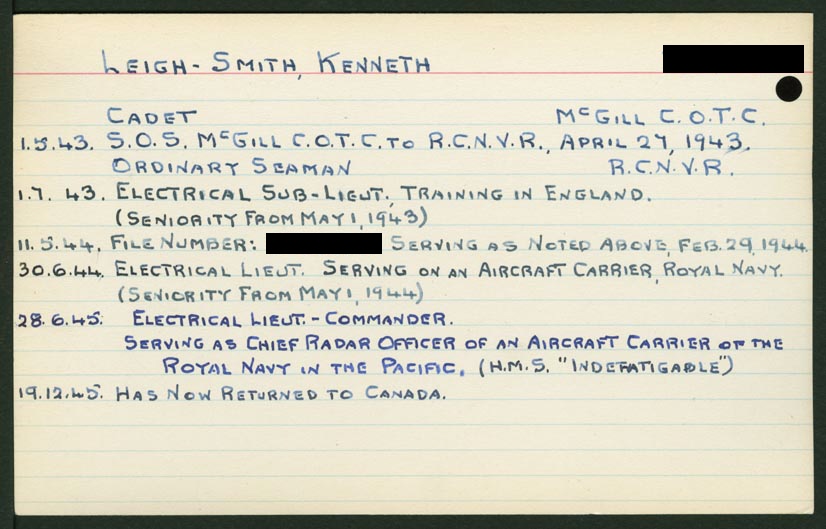 Leigh-Smith, Kenneth
Cadet McGill C.O.T.C.
1.5.43. S.O.S. McGill C.O.T.C. to R.C.N.V.R., April 27, 1943.
Ordinary Seaman R.C.N.V.R.
1.7.43. Electrical Sub-Lieut., Training in England.
(Seniority from May 1, 1943)
11.5.44. File Number: Serving as noted above, Feb. 29, 1944.
30.6.44. Electrical Lieut. Serving on an Aircraft Carrier, Royal Navy.
(Seniority from May 1, 1944)
28.6.45. Electrical Lieut.-Commander.
Serving as Chief Radar Officer of an Aircraft Carrier of the
Royal Navy in the Pacific, (H.M.S. "Indefatigable")
19.12.45. Has now returned to Canada.